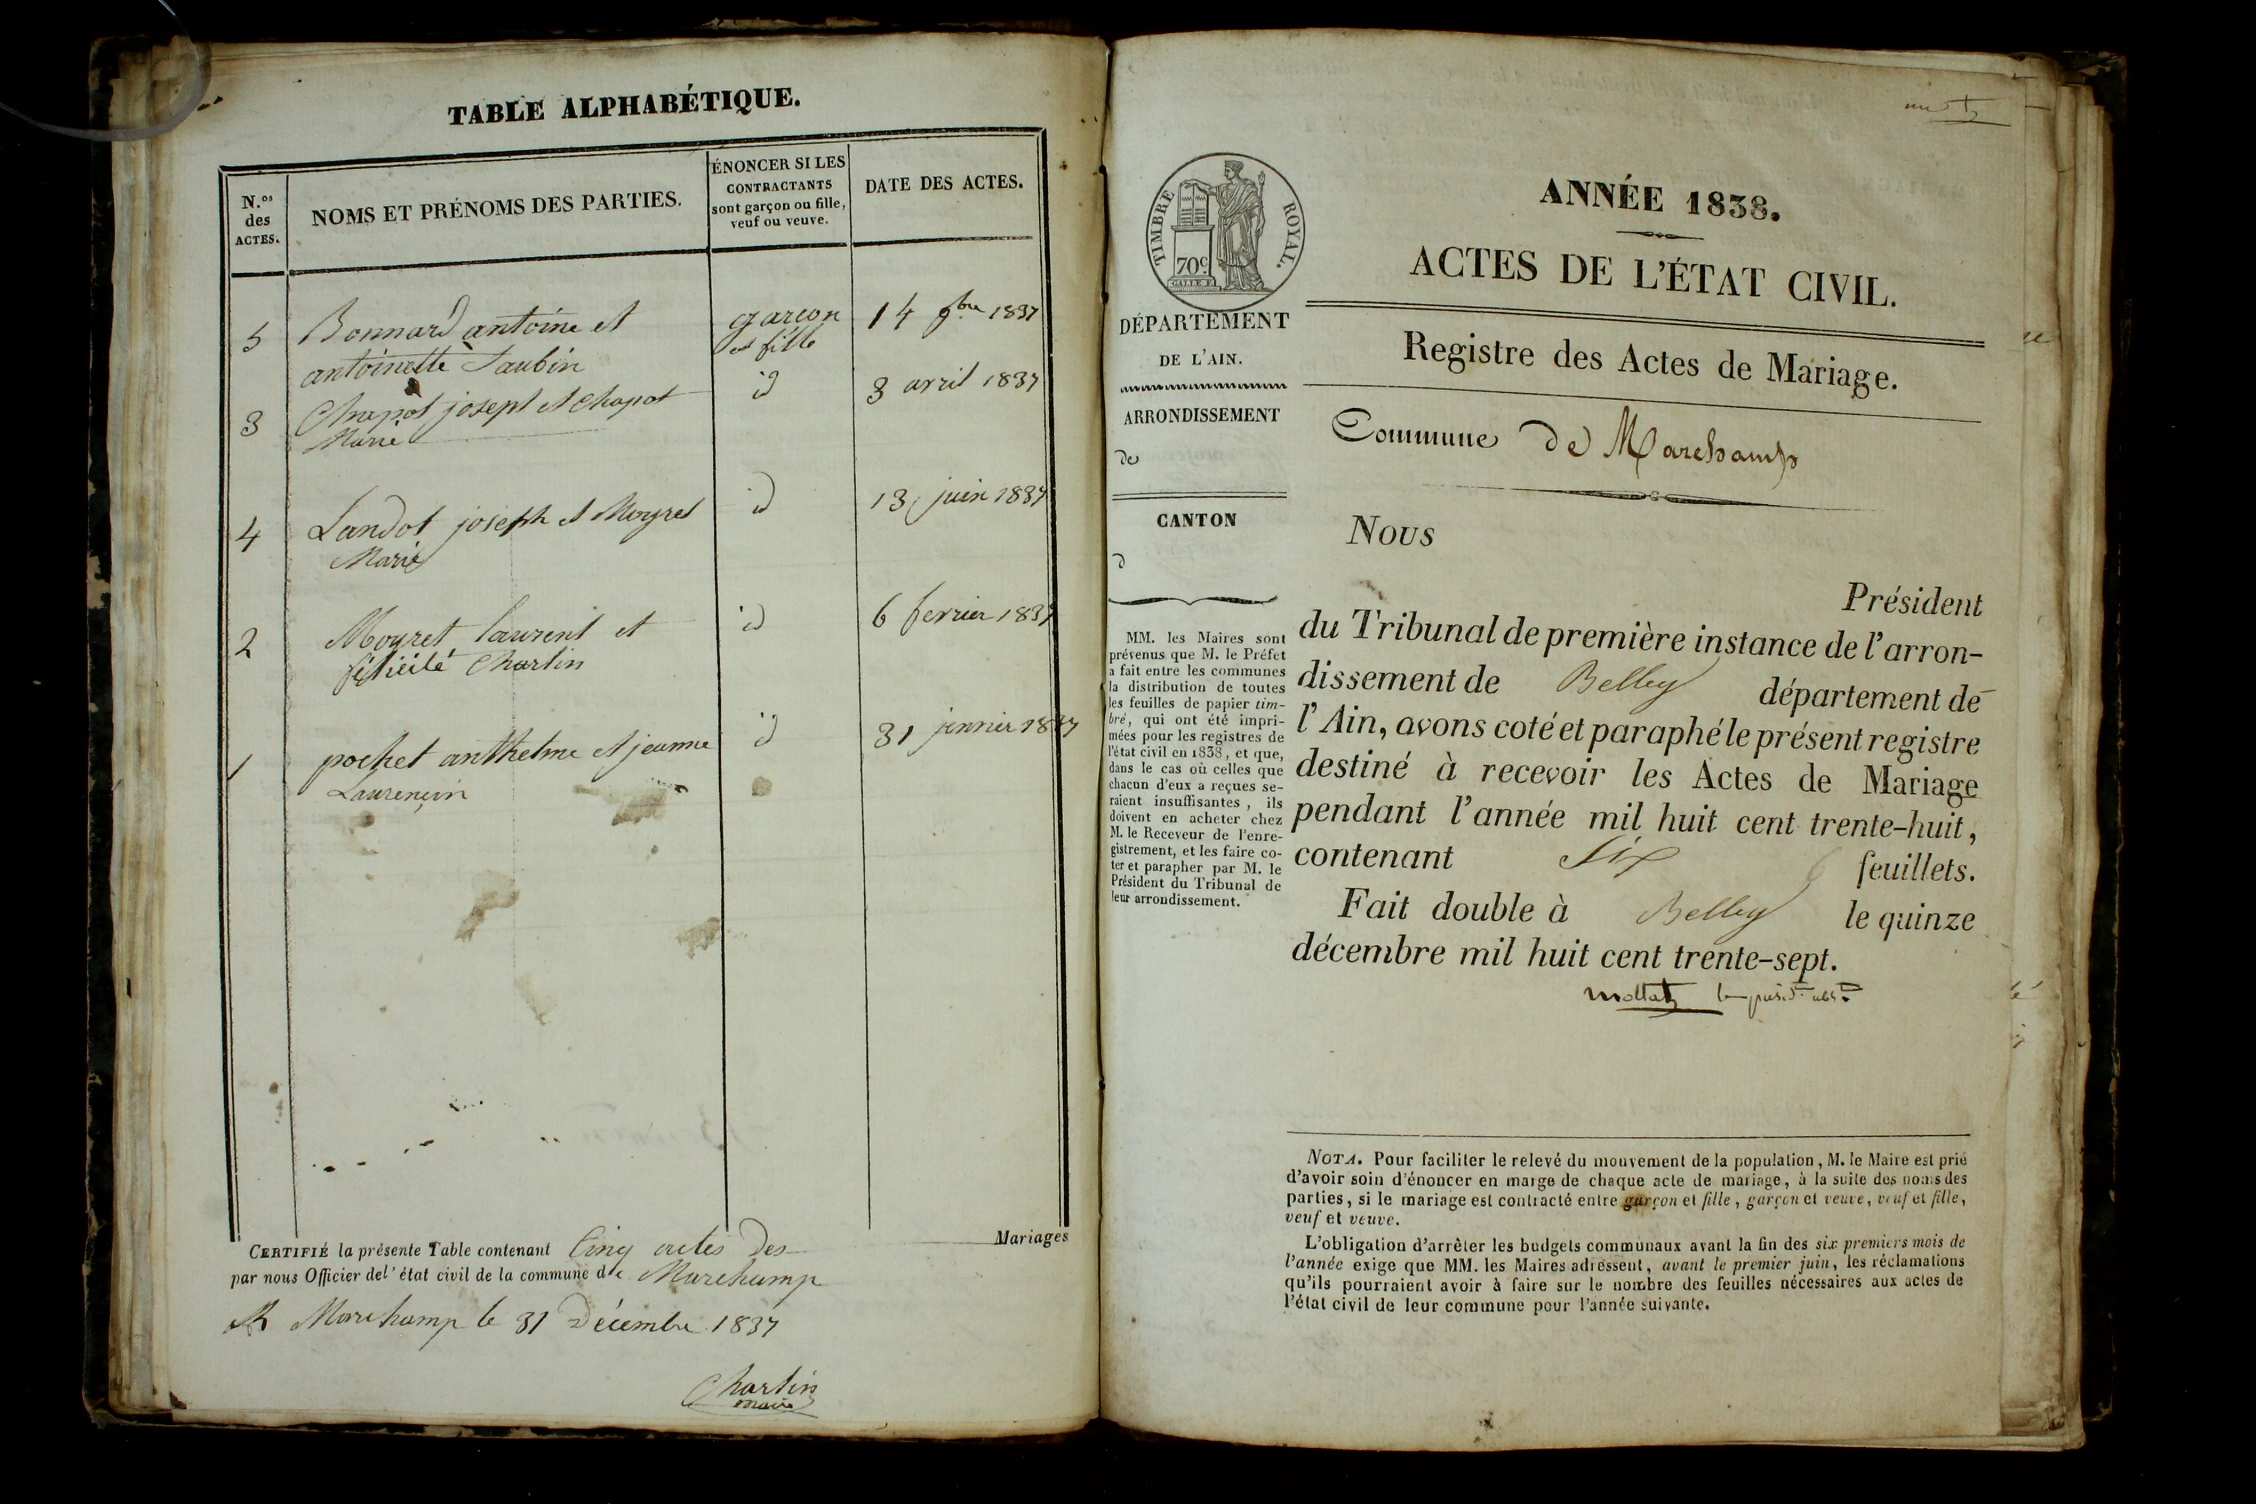 TABLE ALPHABÉTIQUE.
N.os des ACTES.
NOMS ET PRÉNOMS DES PARTIES.
ÉNONCER SI LES
CONTRACTANTS
sont garçon ou fille,
veuf ou veuve.
DATE DES ACTES.
5 Bonnard antoine et garçon 14 9bre 1837
antoinette Saubin et fille
3 Chapot joseph et Chapot id 3 avril 1837
Marie
4 Landot joseph et Moyret id 13 juin 1837
Marie
2 Moyret laurent et id 6 fevrier 1837
félicité Chartin
1 pochet anthelme et jeanne id 31 jenvier 1837
Laurençin
CERTIFIÉ la présente Table contenant Cinq actes des Mariages
par nous Officier de l'état civil de la commune de Marchamp
A Marchamp le 31 Décembre 1837
Chartin
maire
TIMBRE ROYAL.
70c
DÉPARTEMENT
DE L'AIN.
ARRONDISSEMENT
de
CANTON
d
MM. les Maires sont
prévenus que M. le Préfet
a fait entre les communes
la distribution de toutes
les feuilles de papier tim-
bré, qui ont été impri-
mées pour les registres de
l'état civil en 1838, et que,
dans le cas où celles que
chacun d'eux a reçues se-
raient insuffisantes, ils
doivent en acheter chez
M. le Receveur de l'enre-
gistrement, et les faire co-
ter et parapher par M. le
Président du Tribunal de
leur arrondissement.
ANNÉE 1838.
ACTES DE L'ÉTAT CIVIL.
Registre des Actes de Mariage.
Commune de Marchamp
Nous
Président
du Tribunal de première instance de l'arron-
dissement de Belley département de
l'Ain, avons coté et paraphé le présent registre
destiné à recevoir les Actes de Mariage
pendant l'année mil huit cent trente-huit,
contenant Six 6 feuillets.
Fait double à Belley le quinze
décembre mil huit cent trente-sept.
NOTA. Pour faciliter le relevé du mouvement de la population, M. le Maire est prié
d'avoir soin d'énoncer en marge de chaque acte de mariage, à la suite des noms des
parties, si le mariage est contracté entre garçon et fille, garçon et veuve, veuf et fille,
veuf et veuve.
L'obligation d'arrêter les budgets communaux avant la fin des six premiers mois de
l'année exige que MM. les Maires adressent, avant le premier juin, les réclamations
qu'ils pourraient avoir à faire sur le nombre des feuilles nécessaires aux actes de
l'état civil de leur commune pour l'année suivante.